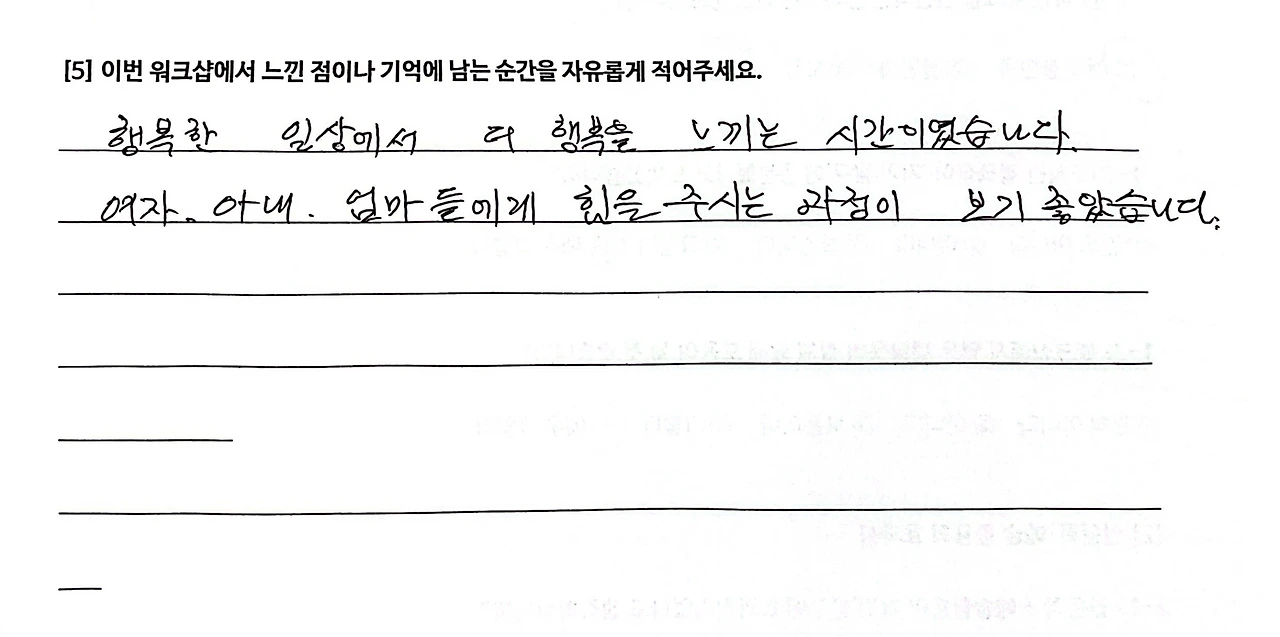 [5] 이번 워크샵에서 느낀 점이나 기억에 남는 순간을 자유롭게 적어주세요.
행복한 일상에서 더 행복을 느끼는 시간이였습니다.
여자. 아내. 엄마들에게 힘을 주시는 과정이 보기 좋았습니다.